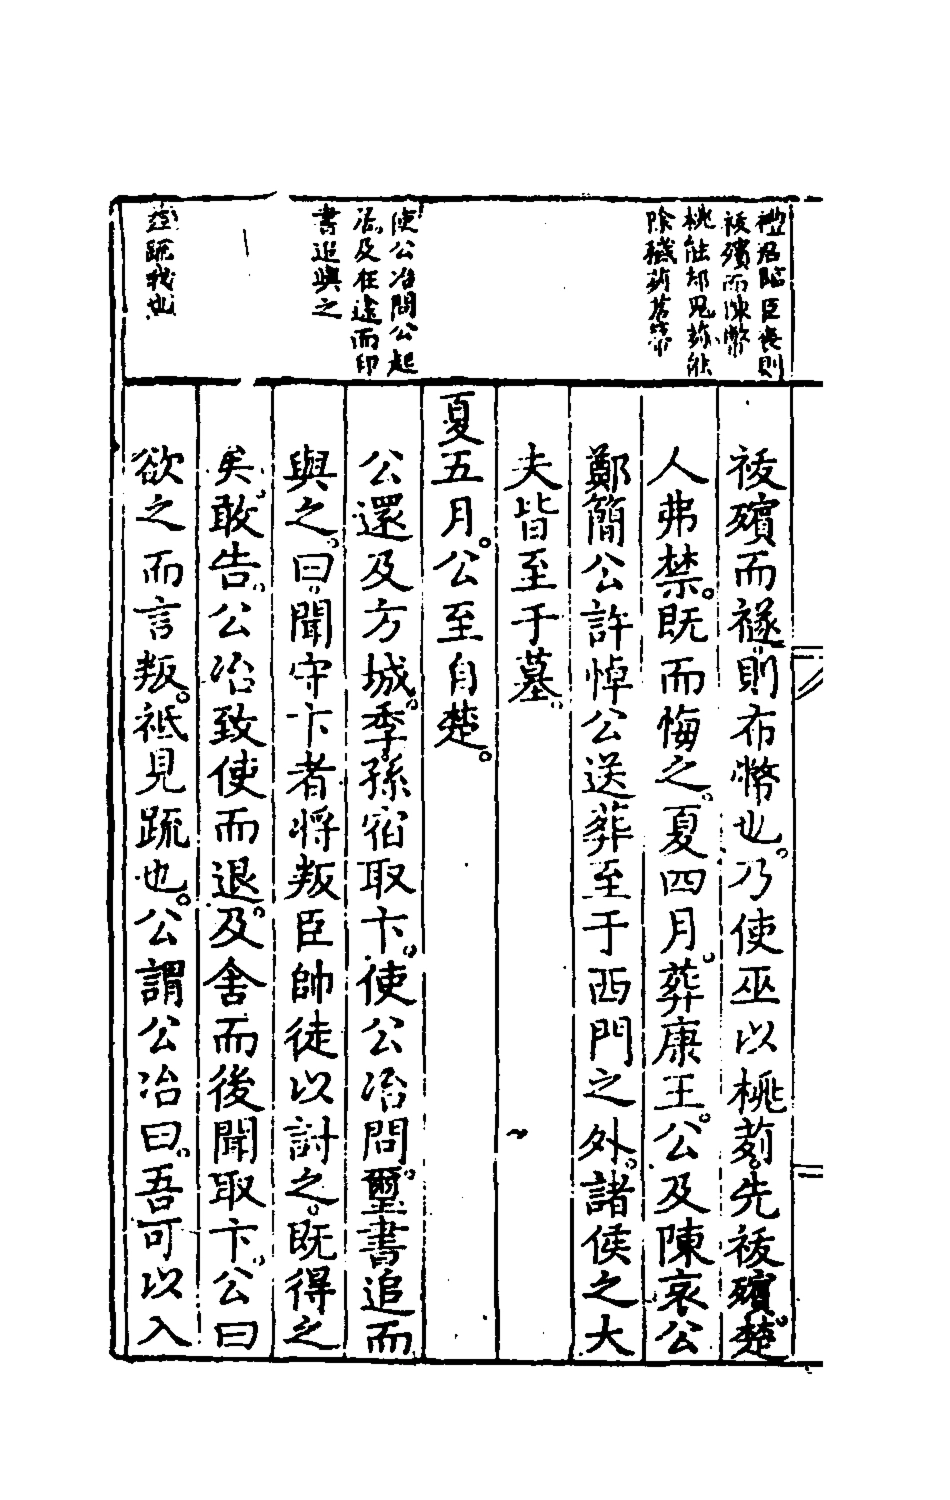 禮君臨臣喪則
祓殯而陳幣
桃能却鬼茢能
除穢茢苕帚
使公冶問公起
居及在途而印
書追與之
疏我也
祓殯而襚則布幣也。乃使巫以桃茢先祓殯。楚
人弗禁。既而悔之。夏四月。葬康王。公及陳哀公
鄭簡公許悼公送葬至于西門之外。諸侯之大
夫皆至于墓。
夏五月。公至自楚。
公還及方城。季孫宿取卞。使公冶問。璽書追而
與之。曰。聞守卞者將叛臣帥徒以討之。既得之
矣。敢告。公冶致使而退。及舍而後聞取卞。公曰
欲之而言叛。祗見疏也。公謂公冶曰。吾可以入